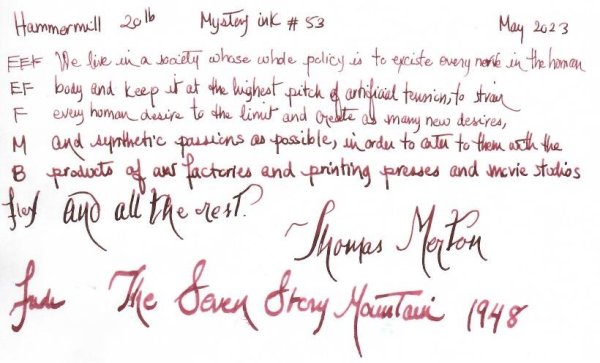 Hammermill 20lb Mystery ink # 53 May 2023
EEF We live in a society whose whole policy is to excite every nerve in the human
EF body and keep it at the highest pitch of artificial tension, to strain
F every human desire to the limit and create as many new desires,
M and synthetic passions as possible, in order to cater to them with the
B products of our factories and printing presses and movie studios
flex and all the rest.
~Thomas Merton
fude The Seven Story Mountain 1948